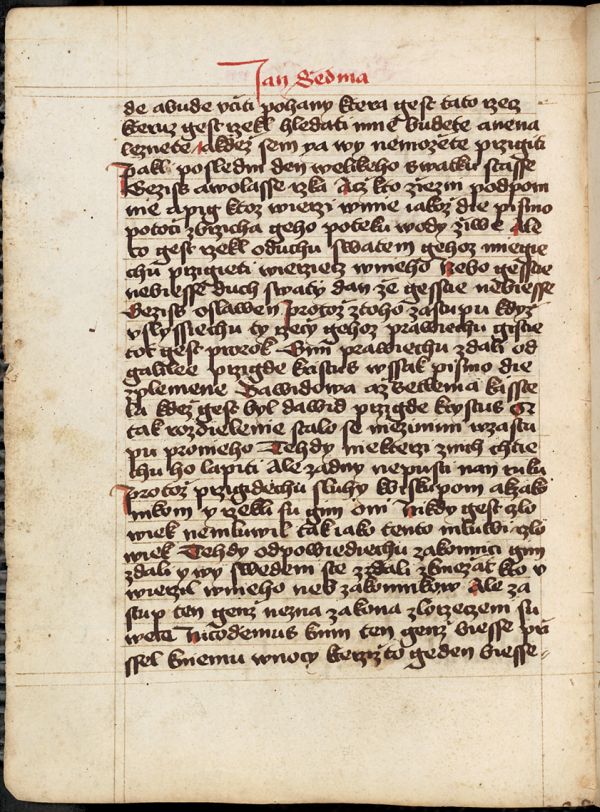 Jan Sedma
de abude vciti pohany ktera gest tato rzecz
kteruz gest rzekl hledati mne budete anena
leznete akdez sem ya wy nemozete przigiti
Pakli posledni den welikeho swatku stasse
Geziss awolasse rzka Acz kto ziezni podpom
nie apig ktoz wierzi wmie iakoz die pismo
potoci zbrzicha geho poteku wody ziwe Ale
to gest rzekl oduchu swatem gehoz mnegie
chu przigieti wierziecz wnieho Nebo gesscie
nebiesse duch swaty dan ze gesscie nebiesse
Geziss oslawen Protoz ztoho zastupu kdyz
vslyssiechu ty rzeczy gehoz prawiechu gistie
tot gest prorok Gini prawiechu zdali od
galilee przigde kristus wssak pismo die
zplemene Dawidowa azbetlema kasste
la kdez gest byl dawid przigde krystus A
tak rozdielenie stalo se mezimim wzastu
pu pronieho Tehdy niekterzi znich chtie
chu ho lapiti Ale zadny nepusti nan ruku
Protoz przigidechu sluhy kbiskupom akzako
nikom y rzekli su gim oni Nikdy gest czlo
wiek nemluwil tak iako tento mluwi czlo
wiek Tehdy odpowiediechu zakonnici gim
zdali y wy swedeni ste zzdali zkniezat kto v
wierzil wnieho neb zakonnikow Ale za
stup ten genz nezna zakona zlorzeczeni su
wece Nicodemus knim ten genz biesse przi
ssel knemu wnocy kterziz to geden biesse